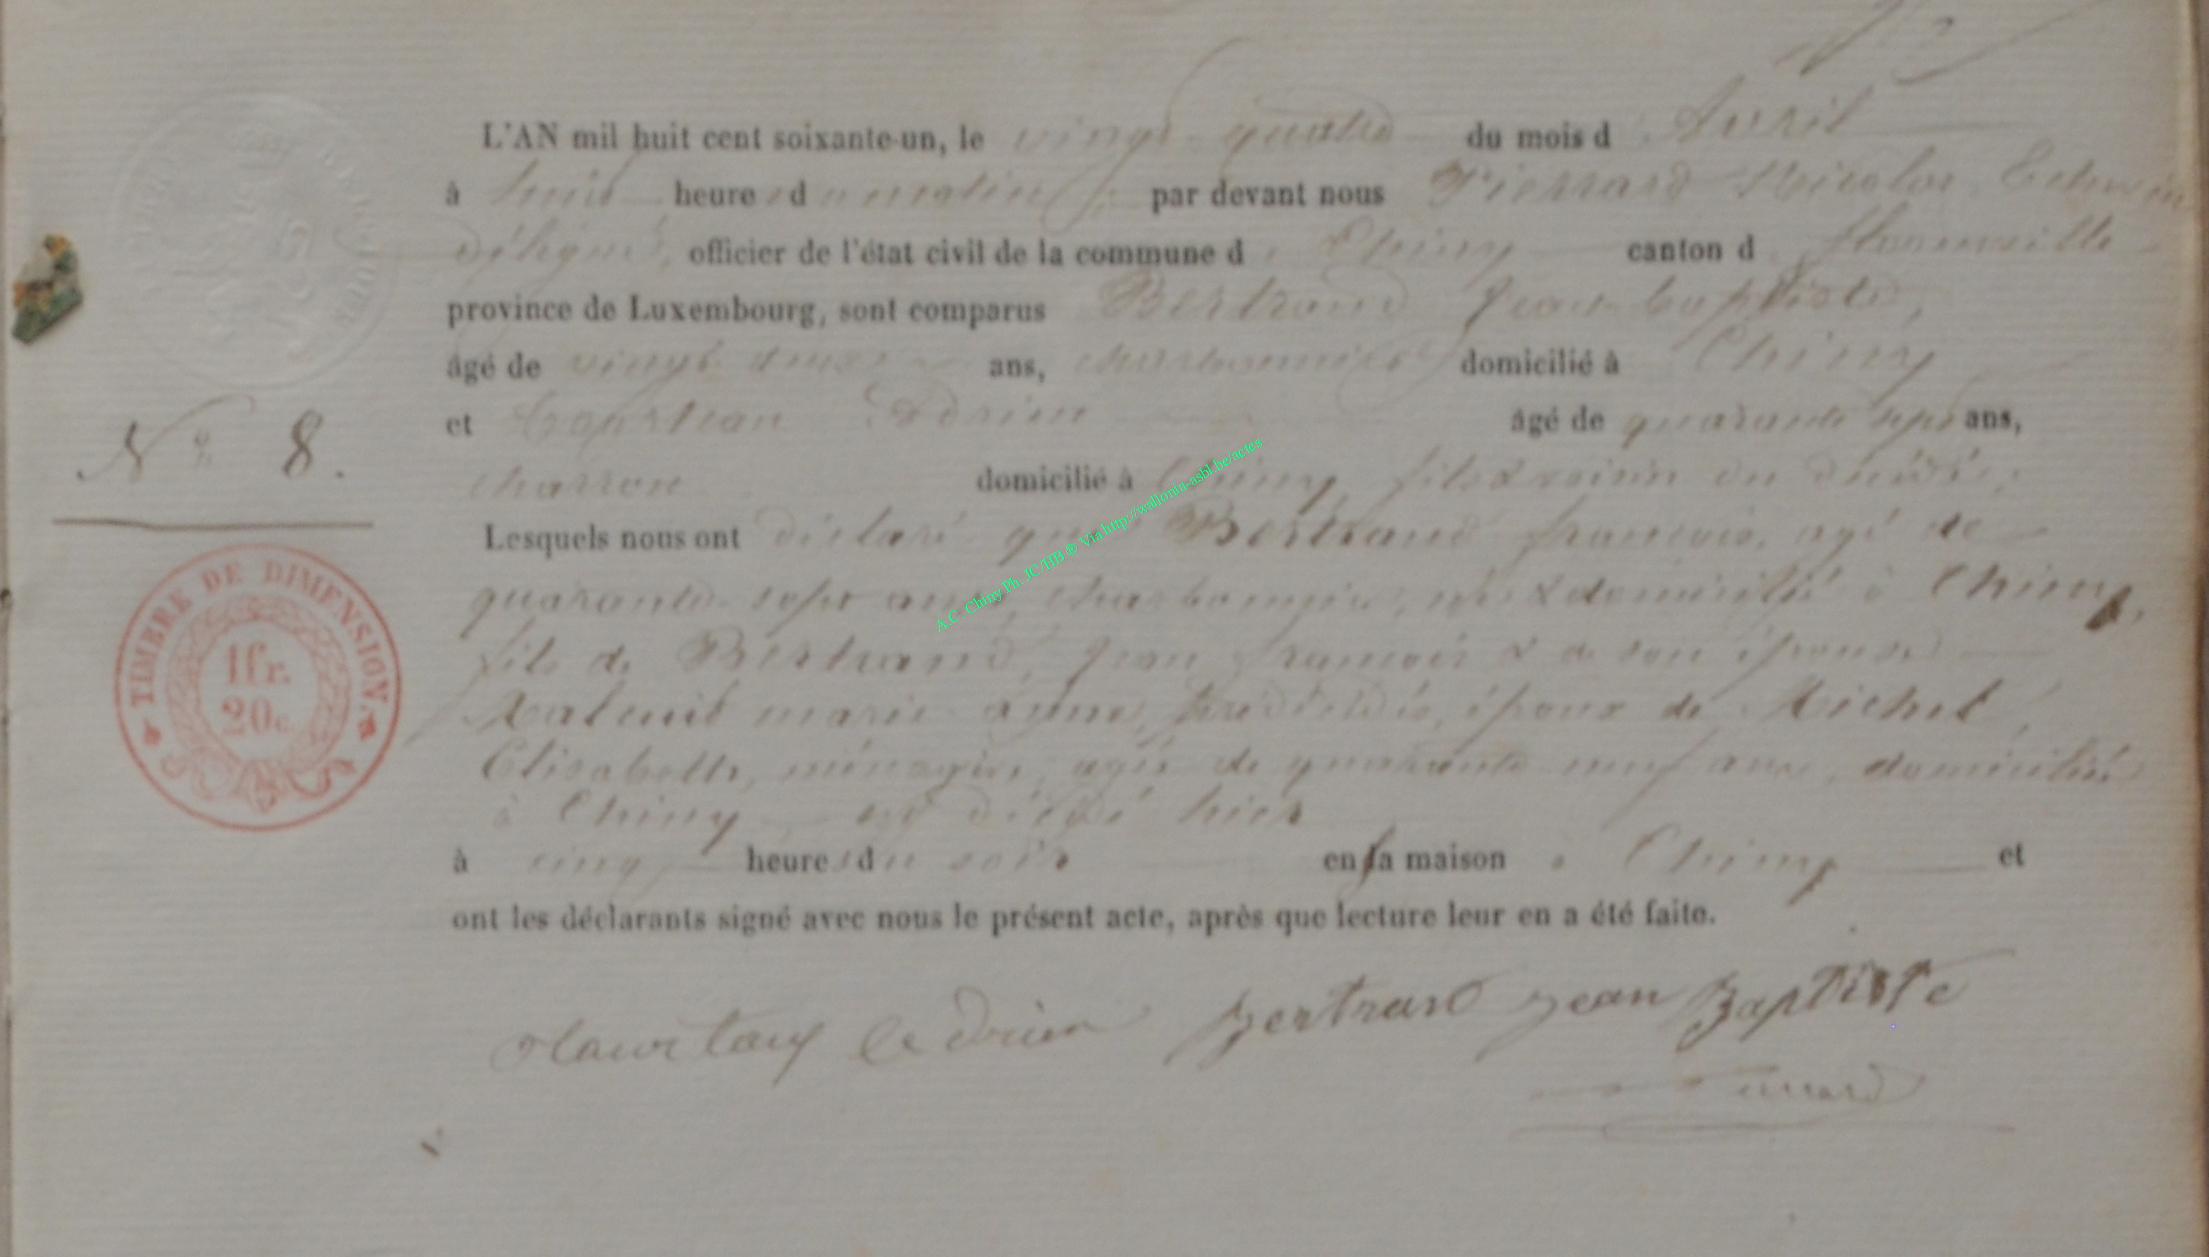 L'AN mil huit cent soixante-un, le vingt-quatre du mois d'Avril
à huit heures du matin, par devant nous Pierrard Nicolas Echevin
délégué, officier de l'état civil de la commune de Chiny canton de florenville
province de Luxembourg, sont comparus Bertrand Jean-baptiste,
âgé de vingt deux ans, charbonnier domicilié à Chiny
et âgé de quarante sept ans,
charron domicilié à Chiny, fils & voisin du décédé,
Lesquels nous ont déclaré que Bertrand françois, agé de
quarante-sept ans, charbonnier né & domicilié à Chiny,
fils de Bertrand, Jean françois & de son épouse
marie anne, prédécédés, époux de Michel,
Elisabeth, ménagère, agée de quarante neuf ans, domiciliée
à Chiny est décédé hier
à cinq heures du soir en sa maison à Chiny et
ont les déclarants signé avec nous le présent acte, après que lecture leur en a été faite.
Bertrand Jean Baptiste
Pierrard
No 8.
TIMBRE DE DIMENSION.
1fr.
20c.
A.C. Chiny Ph. JC/HB® Via http://wallonia-asbl.be/actes